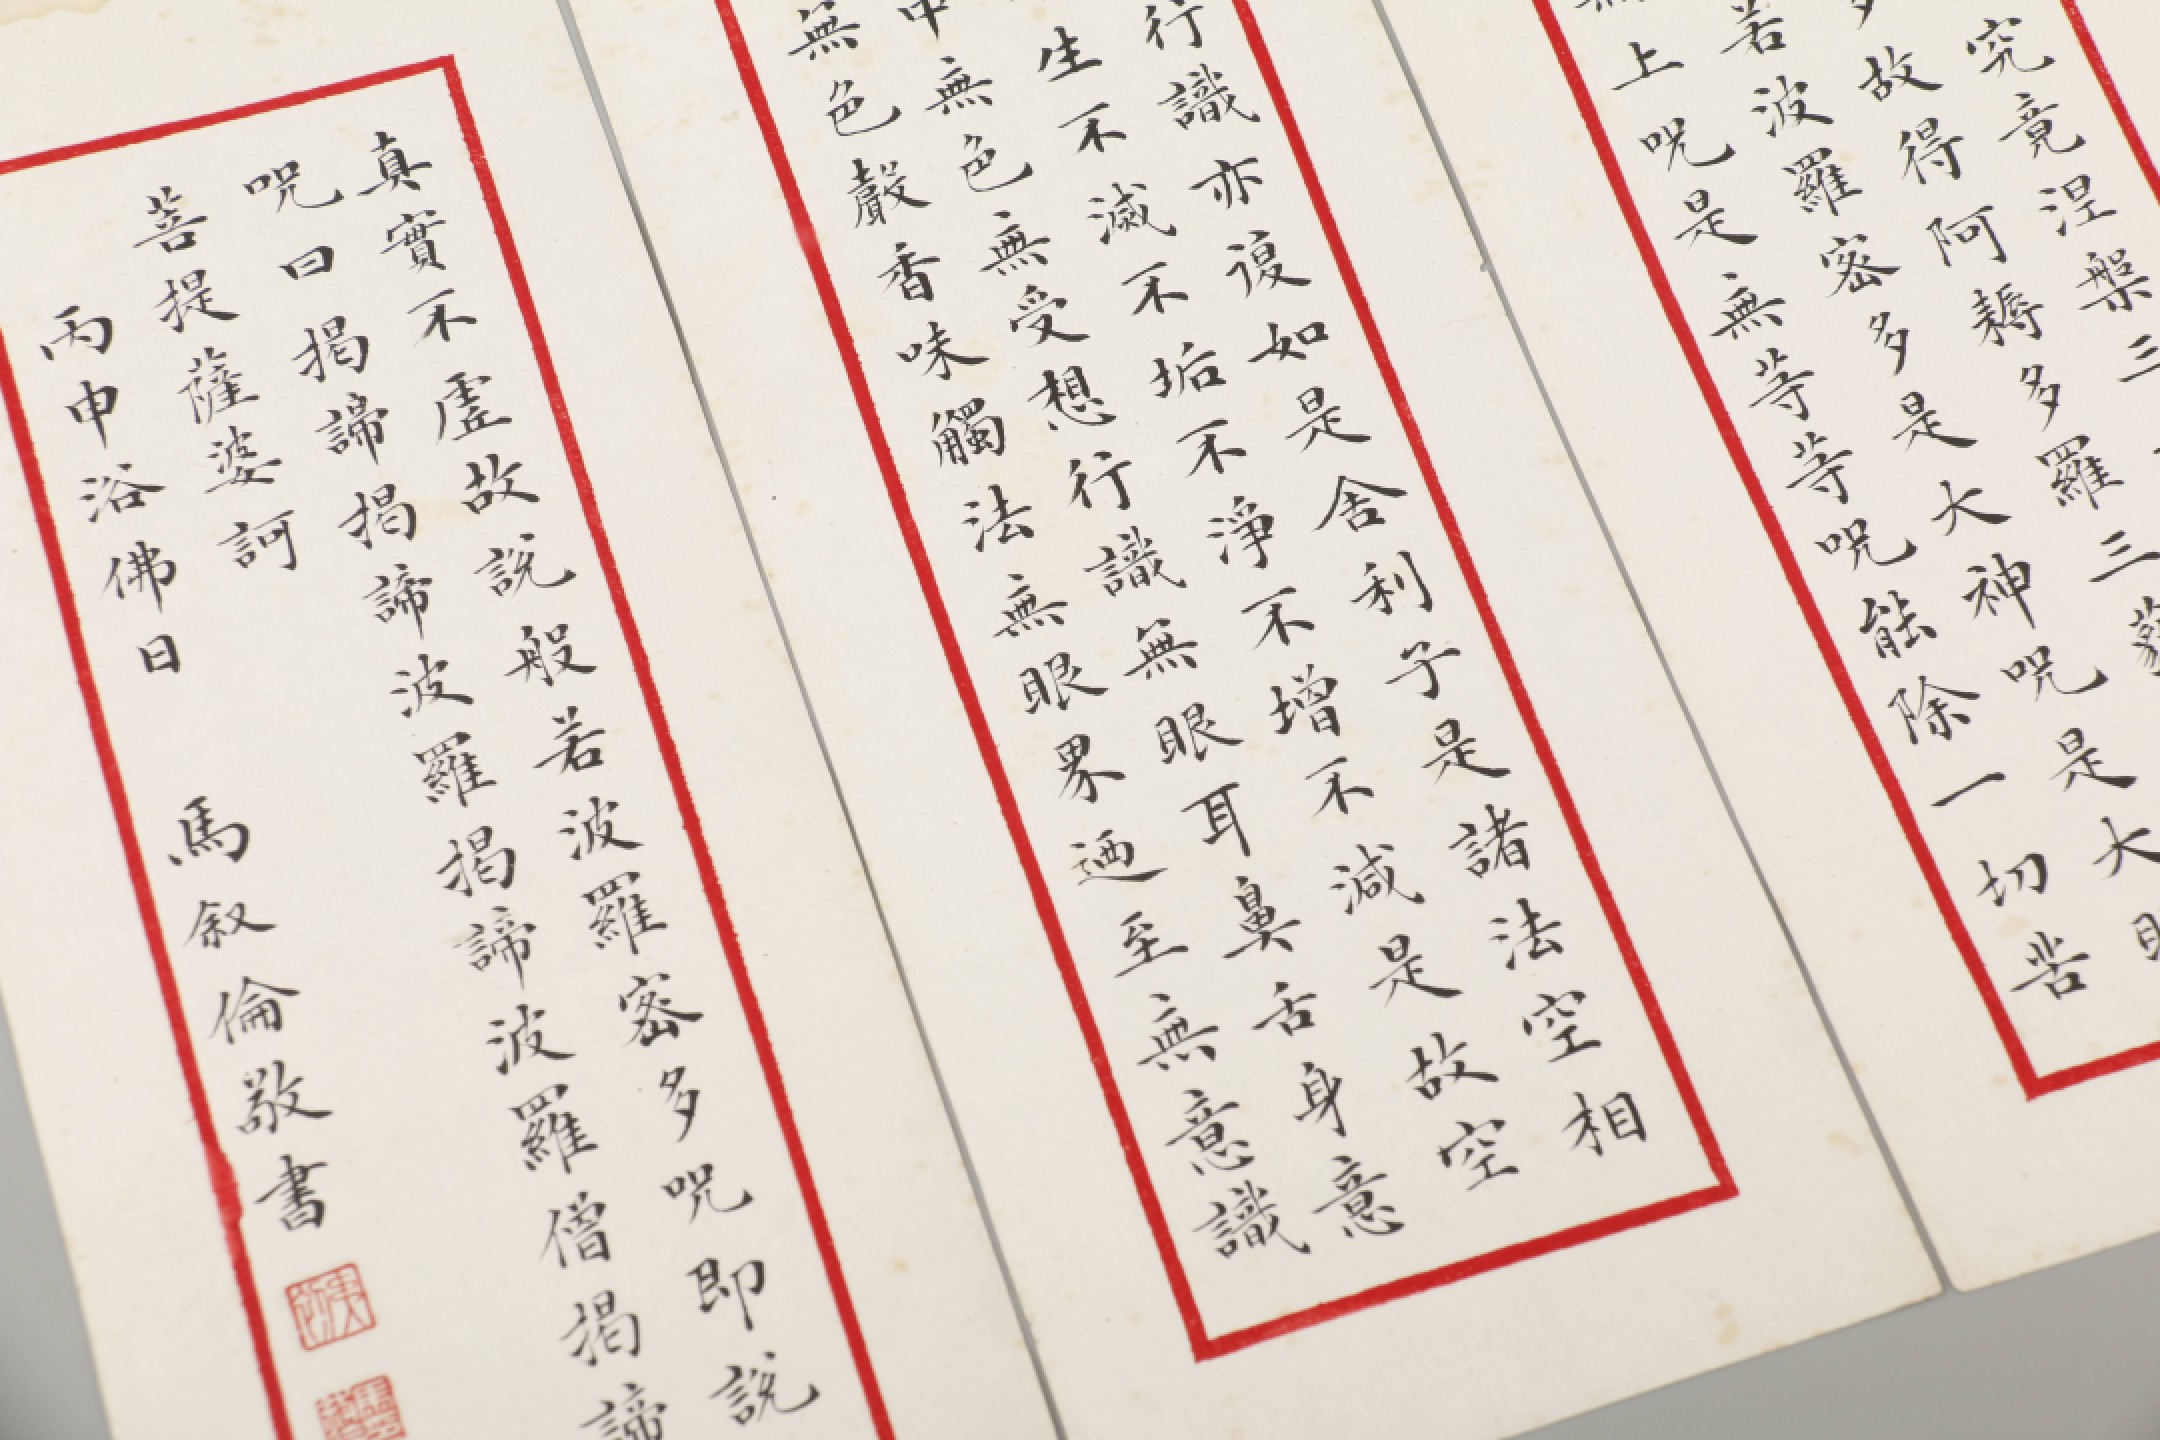 究竟涅槃三
故得阿耨多羅三藐
若波羅密多是大神咒是大
上咒是無等等咒能除一切苦
行識亦復如是舍利子是諸法空相
生不滅不垢不淨不增不減是故空
中無色無受想行識無眼耳鼻舌身意
無色聲香味觸法無眼界迺至無意識
真實不虛故說般若波羅密多咒即說
咒曰揭諦揭諦波羅揭諦波羅僧揭諦
菩提薩婆訶
丙申浴佛日 馬叙倫敬書